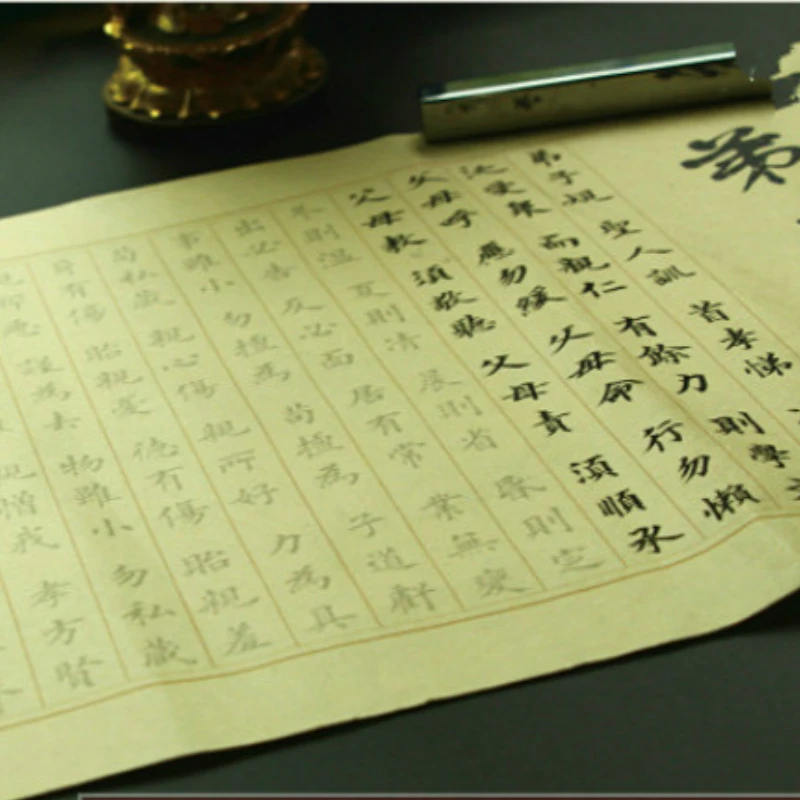 弟
弟子規 聖人訓 首孝悌
汎愛眾 而親仁 有餘力 則學文
父母呼 應勿緩 父母命 行勿懶
父母教 須敬聽 父母責 須順承
冬則溫 夏則凊 晨則省 昏則定
出必告 反必面 居有常 業無變
事雖小 勿擅為 苟擅為 子道虧
苟私藏 親心傷 親所好 力為具
身有傷 貽親憂 德有傷 貽親羞
所惡 謹為去 物雖小 勿私藏
親憎我 孝方賢